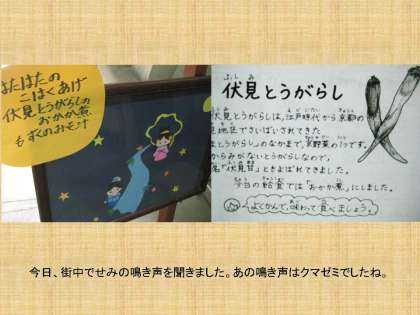 はたはたの
こはくあげ
伏見とうがらしの
おかか煮
もずくのみそ汁
ふしみ
伏見とうがらし
伏見とうがらしは、江戸時代から京都の
見地区でさいばいされてきた
とうがらし」のなかまで、京野菜の1つです。
からみがないとうがらしなので、
名「伏見甘」ともよばれてきました。
今日の給食では「おかか煮」にしました。
よくかんで、味わって食べましょう。
今日、街中でせみの鳴き声を聞きました。あの鳴き声はクマゼミでしたね。